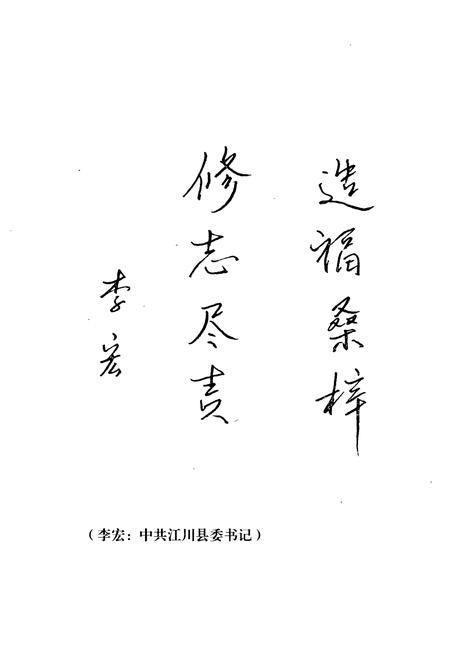 造福桑梓
修志尽责
李宏
（李宏：中共江川县委书记）